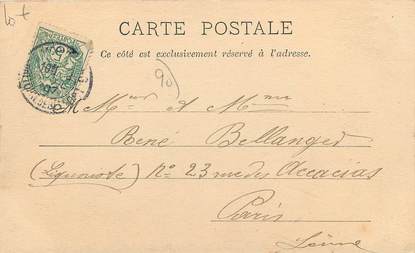 CARTE POSTALE
Ce côté est exclusivement réservé à l'adresse.
(90)
Mr et Mme
René Bellanger
(Liquoriste) No 23 rue des Accacias
Paris
Seine